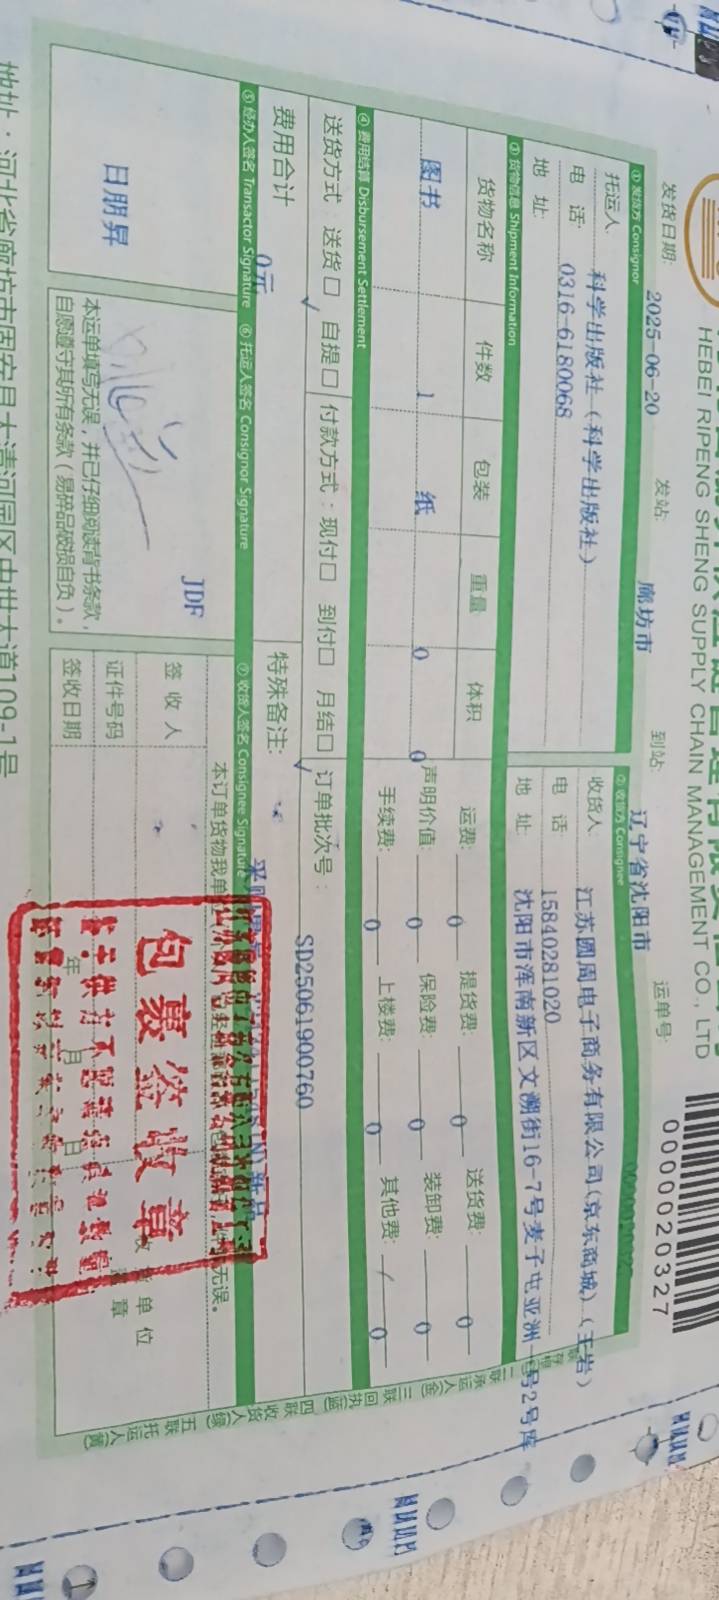 HEBEI RIPENG SHENG SUPPLY CHAIN MANAGEMENT CO., LTD
0000020327
发货日期: 2025-06-20 发站: 廊坊市 到站: 辽宁省沈阳市 运单号:
① 发货方 Consignor
托运人: 科学出版社(科学出版社)
电 话: 0316-6180068
地 址:
② 收货方 Consignee
收货人: 江苏圆周电子商务有限公司(京东商城)(王岩)
电 话 15840281020
地 址: 沈阳市浑南新区文溯街16-7号麦子屯亚洲一号2号库
③ 货物信息 Shipment Information
货物名称 件数 包装 重量 体积
图书 1 纸 0 0
运费: 0 提货费: 0 送货费: 0
声明价值: 0 保险费: 0 装卸费: 0
手续费: 0 上楼费: 0 其他费: 0
④ 费用结算 Disbursement Settlement
送货方式: 送货□ 自提□ 付款方式: 现付□ 到付□ 月结□ 订单批次号: SD25061900760
费用合计 0元
特殊备注:
⑤ 经办人签名 Transactor Signature
⑥ 托运人签名 Consignor Signature
⑦ 收货人签名 Consignee Signature
日朋昇
JDF
本运单填写无误,并已仔细阅读背书条款,
自愿遵守其所有条款(易碎品破损自负)。
本订单货物我单位
无误。
签 收 人
证件号码
签收日期
年 月 日
单 位
章
包裹签收章
一联存根
二联承运人(金)
三联回执(蓝)
四联收货人(绿)
五联托运人(黄)
地址:河北省廊坊市固安县大清河园区中世大道109-1号